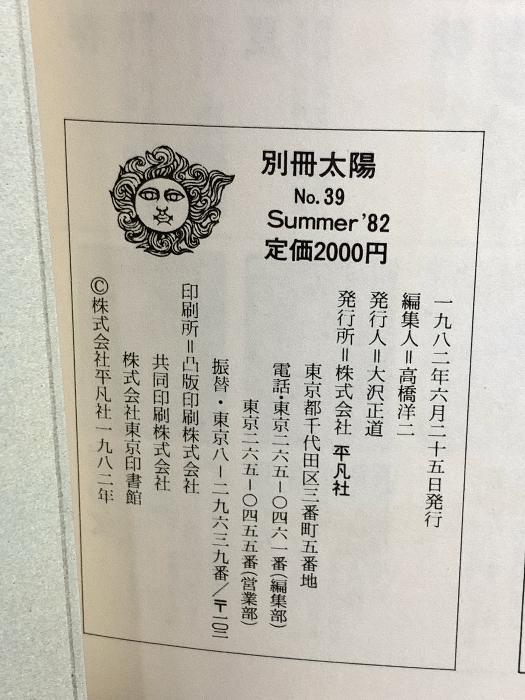 別冊太陽
No. 39
Summer '82
定価2000円
一九八二年六月二十五日発行
編集人＝高橋洋二
発行人＝大沢正道
発行所＝株式会社 平凡社
東京都千代田区三番町五番地
電話・東京二六五―〇四六一番(編集部)
東京二六五―〇四五五番(営業部)
振替・東京八―二九六三九番／〒一〇二
印刷所＝凸版印刷株式会社
共同印刷株式会社
株式会社東京印書館
©株式会社平凡社一九八二年